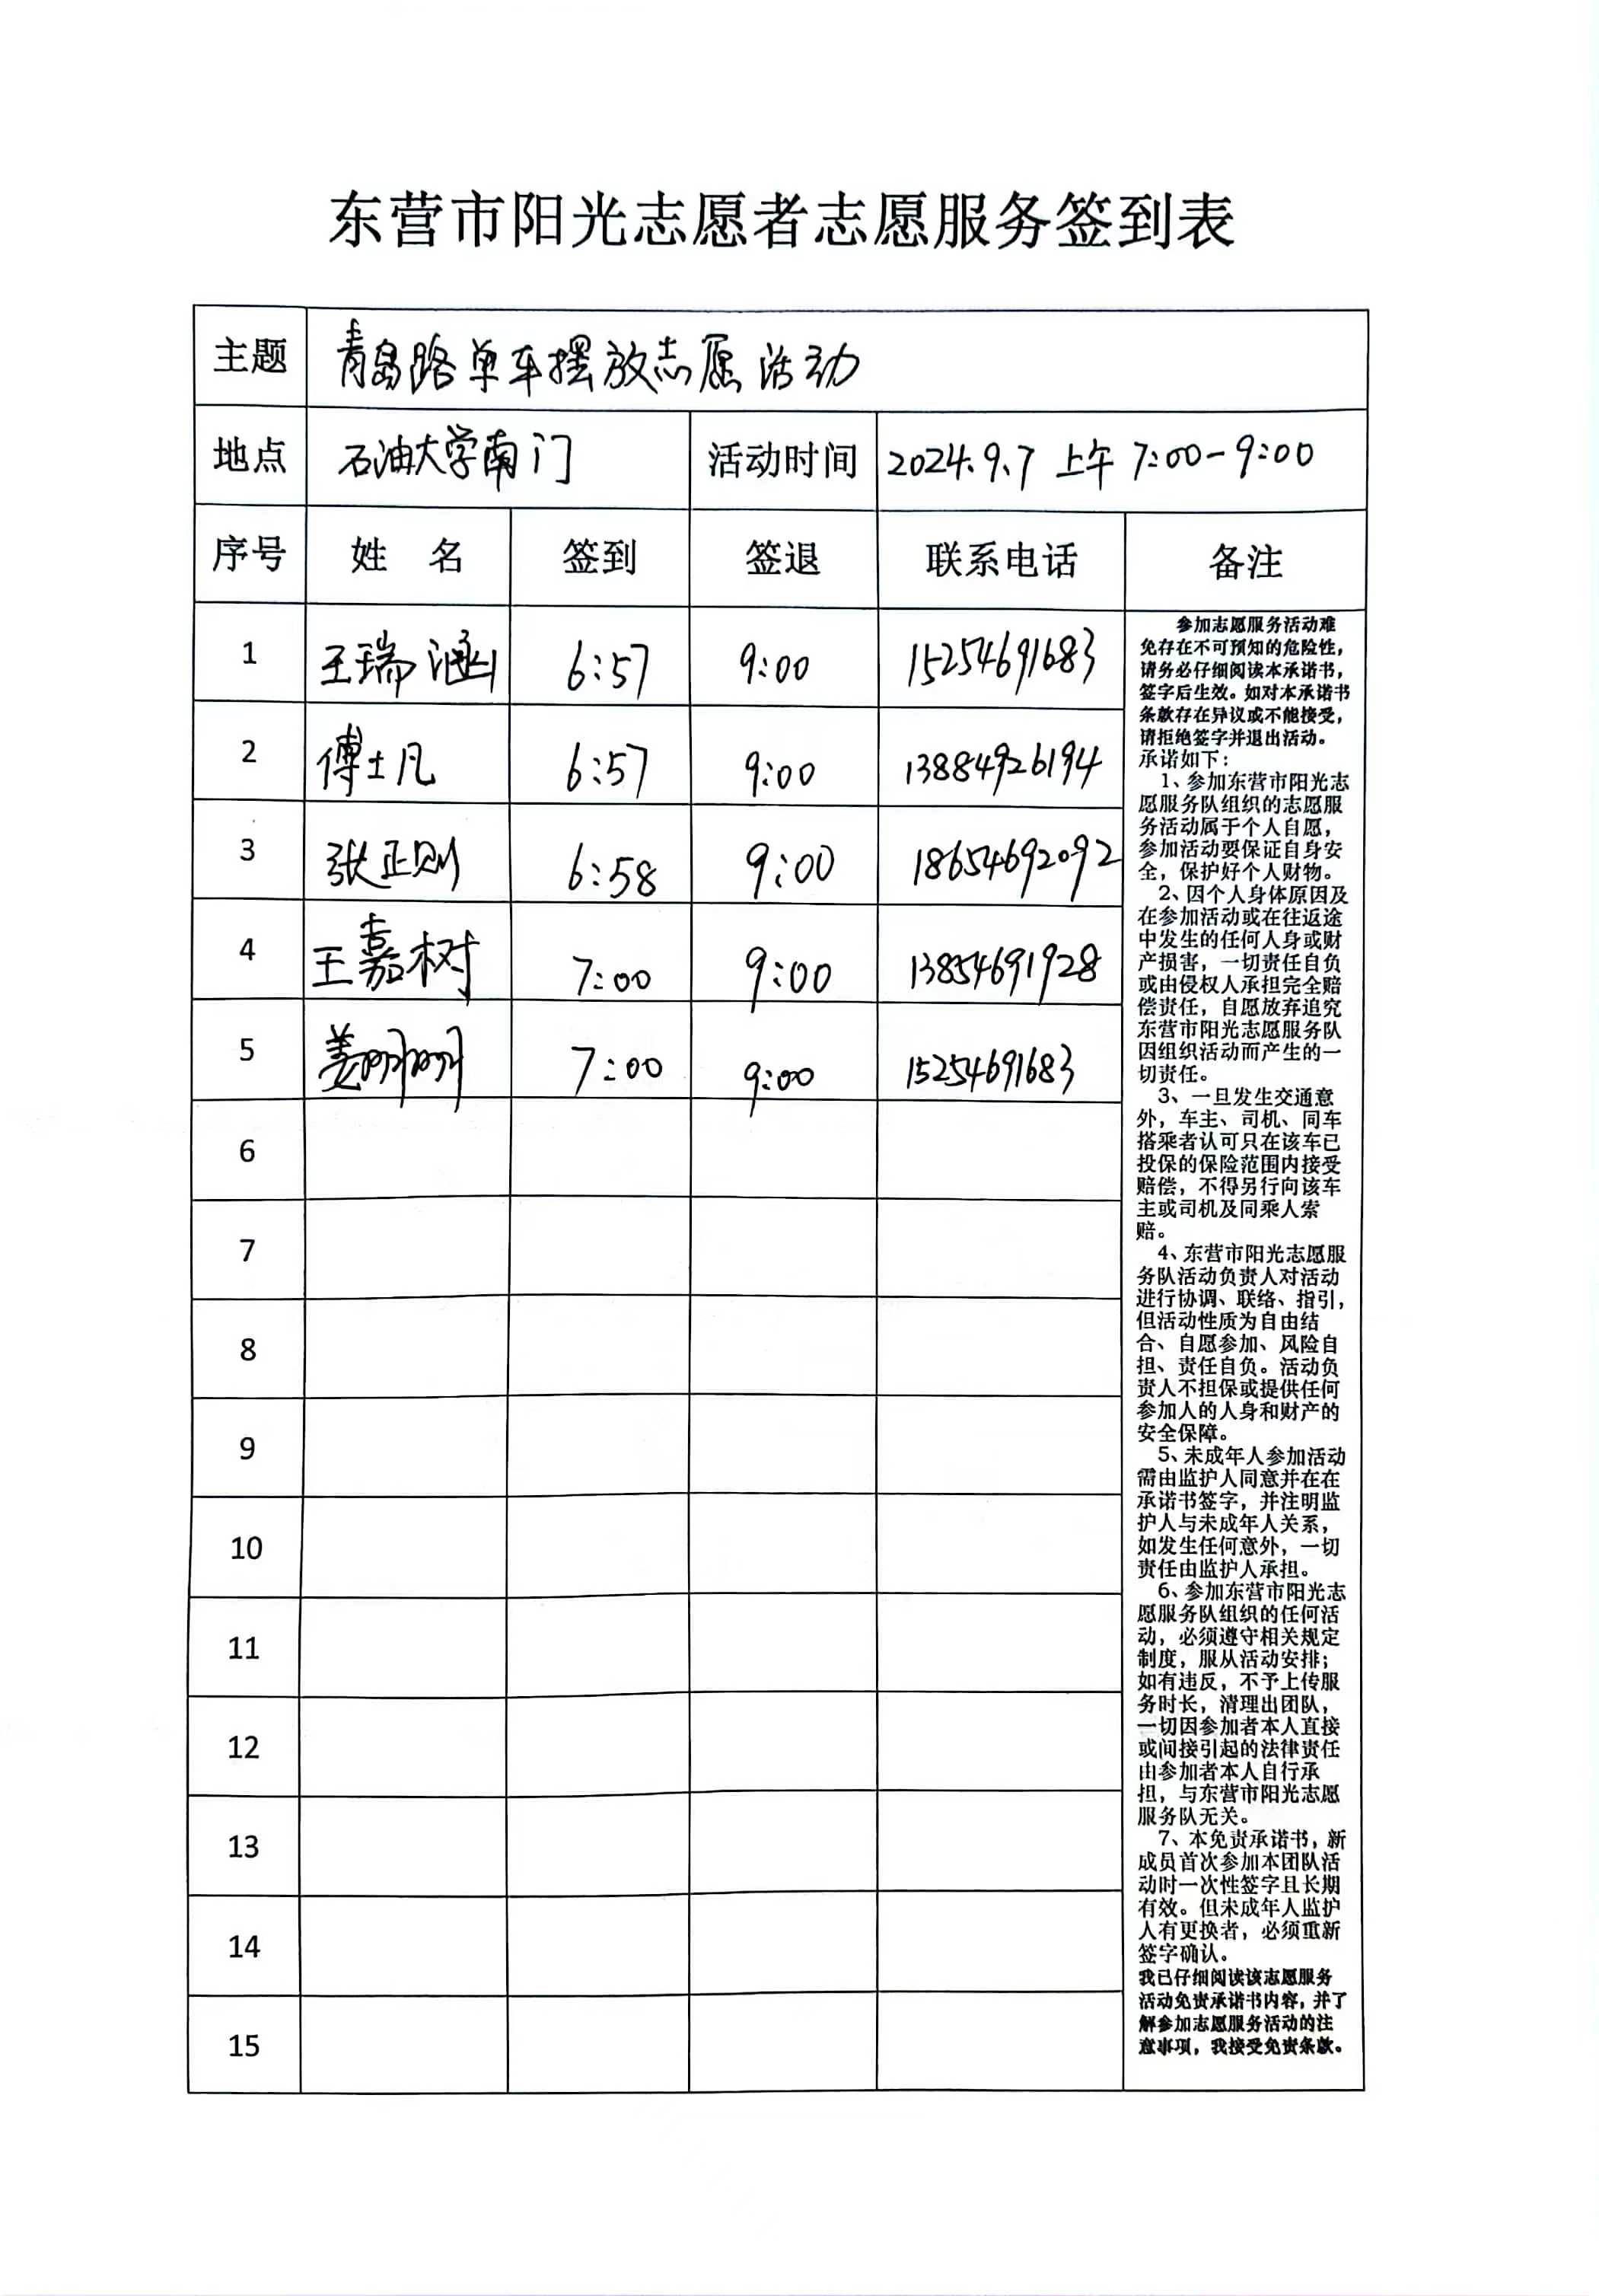 东营市阳光志愿者志愿服务签到表
主题 青岛路单车摆放志愿活动
地点 石油大学南门 活动时间 2024.9.7 上午 7:00-9:00
序号 姓 名 签到 签退 联系电话 备注
1 王瑞涵 6:57 9:00 15254691683
2 傅士凡 6:57 9:00 13884926194
3 张正则 6:58 9:00 18654692092
4 王嘉树 7:00 9:00 13854691928
5 姜明明 7:00 9:00 15254691683
6
7
8
9
10
11
12
13
14
15
参加志愿服务活动难
免存在不可预知的危险性，
请务必仔细阅读本承诺书，
签字后生效。如对本承诺书
条款存在异议或不能接受，
请拒绝签字并退出活动。
承诺如下：
1、参加东营市阳光志
愿服务队组织的志愿服
务活动属于个人自愿，
参加活动要保证自身安
全，保护好个人财物。
2、因个人身体原因及
在参加活动或在往返途
中发生的任何人身或财
产损害，一切责任自负
或由侵权人承担完全赔
偿责任，自愿放弃追究
东营市阳光志愿服务队
因组织活动而产生的一
切责任。
3、一旦发生交通意
外，车主、司机、同车
搭乘者认可只在该车已
投保的保险范围内接受
赔偿，不得另行向该车
主或司机及同乘人索
赔。
4、东营市阳光志愿服
务队活动负责人对活动
进行协调、联络、指引，
但活动性质为自由结
合、自愿参加、风险自
担、责任自负。活动负
责人不担保或提供任何
参加人的人身和财产的
安全保障。
5、未成年人参加活动
需由监护人同意并在在
承诺书签字，并注明监
护人与未成年人关系，
如发生任何意外，一切
责任由监护人承担。
6、参加东营市阳光志
愿服务队组织的任何活
动，必须遵守相关规定
制度，服从活动安排；
如有违反，不予上传服
务时长，清理出团队，
一切因参加者本人直接
或间接引起的法律责任
由参加者本人自行承
担，与东营市阳光志愿
服务队无关。
7、本免责承诺书，新
成员首次参加本团队活
动时一次性签字且长期
有效。但未成年人监护
人有更换者，必须重新
签字确认。
我已仔细阅读该志愿服务
活动免责承诺书内容，并了
解参加志愿服务活动的注
意事项，我接受免责条款。